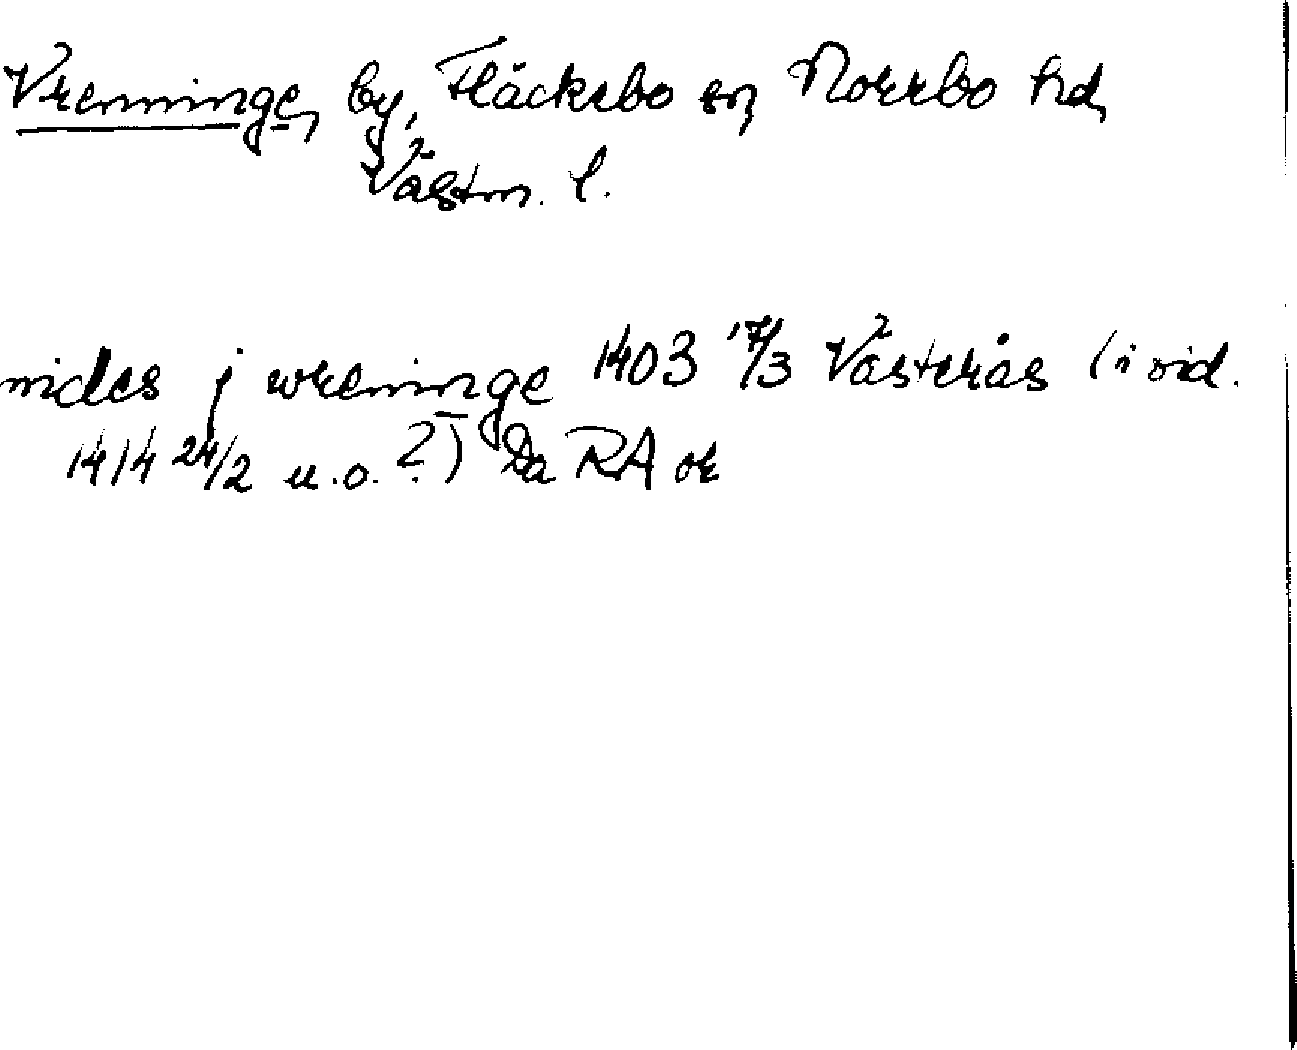 Vrenninge, by, Fläckebo sn, Norrbo hd,
Västm. l.
nicles j wreninge 1403 17/3 Västerås (i vid.
1414 24/2 u.o. ?) Da RA or